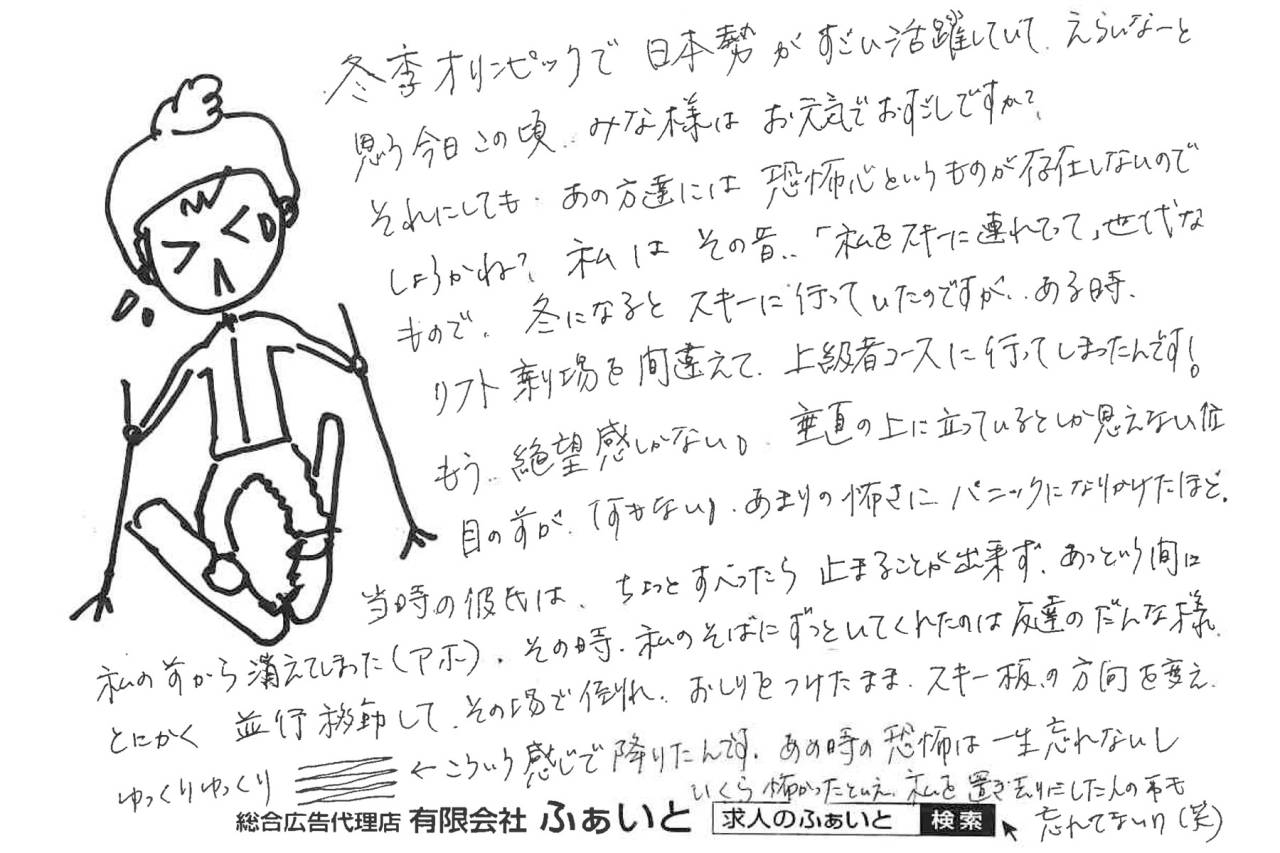 冬季オリンピックで 日本勢が すごい活躍していて、えらいなーと
思う今日この頃、みな様は お元気でおすごしですか?
それにしても、あの方達には 恐怖心というものが存在しないので
しょうかね?私は その昔、「私をスキーに連れてって」世代な
もので、冬になると スキーに行っていたのですが、ある時、
リフト乗り場を間違えて、上級者コースに行ってしまったんです!
もう、絶望感しかない。垂直の上に立っているとしか思えない位
目の前が、「何もない」、あまりの怖さに パニックになりかけたほど。
当時の彼氏は、ちょっとすべったら 止まることが出来ず、あっという間に
私の前から消えてしまった(アホ)、その時、私のそばにずっといてくれたのは友達のだんな様。
とにかく 並行移動して、その場で倒れ、おしりをつけたまま、スキー板の方向を変え、
ゆっくりゆっくり ←こういう感じで降りたんです。あの時の恐怖は一生忘れないし
いくら怖かったといえ、私を置き去りにした人の事も
忘れてないけ(笑)
総合広告代理店 有限会社 ふぁいと 求人のふぁいと 検索